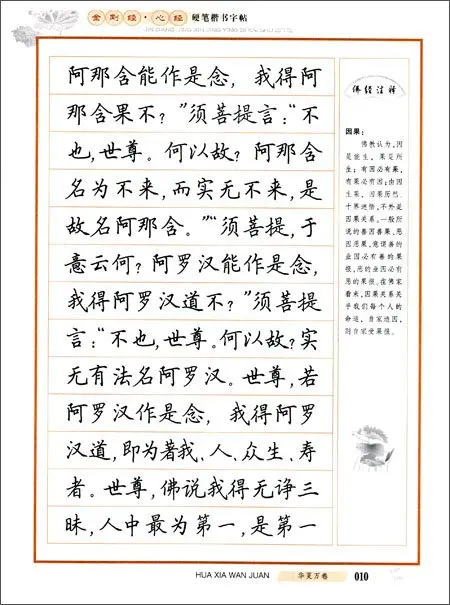 金刚经·心经 硬笔楷书字帖
阿那含能作是念，我得阿
那含果不？”须菩提言：“不
也，世尊。何以故？阿那含
名为不来，而实无不来，是
故名阿那含。”“须菩提，于
意云何？阿罗汉能作是念，
我得阿罗汉道不？”须菩提
言：“不也，世尊。何以故？实
无有法名阿罗汉。世尊，若
阿罗汉作是念，我得阿罗
汉道，即为著我、人、众生、寿
者。世尊，佛说我得无诤三
昧，人中最为第一，是第一
佛经注释
因果：
佛教认为，因
是能生，果是所
生；有因必有果，
有果必有因；由因
生果，因果历然。
十界迷悟，不外是
因果关系。一般所
说的善因善果、恶
因恶果，意谓善的
业因必有善的果
报，恶的业因必有
恶的果报。在佛家
看来，因果关系关
乎我们每个人的
命运，自家造因，
则自家受果报。
HUA XIA WAN JUAN 华夏万卷 010